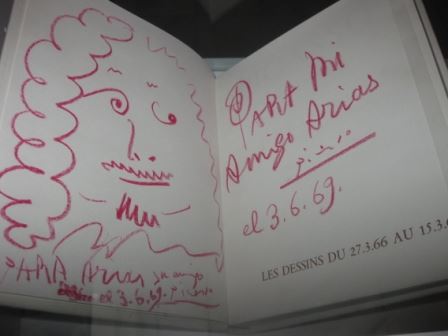 PARA Arias su amigo
el 3.6.69. Picasso
PARA Mi
Amigo Arias
Picasso
el 3.6.69.
LES DESSINS DU 27.3.66 AU 15.3.